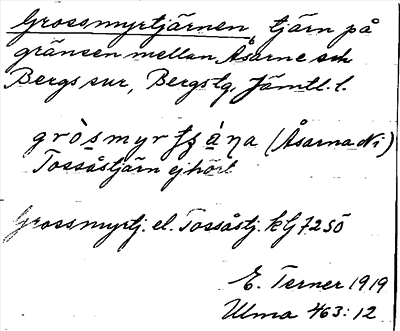 Grossmyrtjärnen, tjärn på
gränsen mellan Åsarne och
Bergs snr, Bergs tg, Jämtl. l.
(Åsarna Ni)
Tossåstjärn ej hört
Grossmyrtj. el. Tossåstj. k bl 72 SÖ
E. Terner 1919
Ulma 463:12